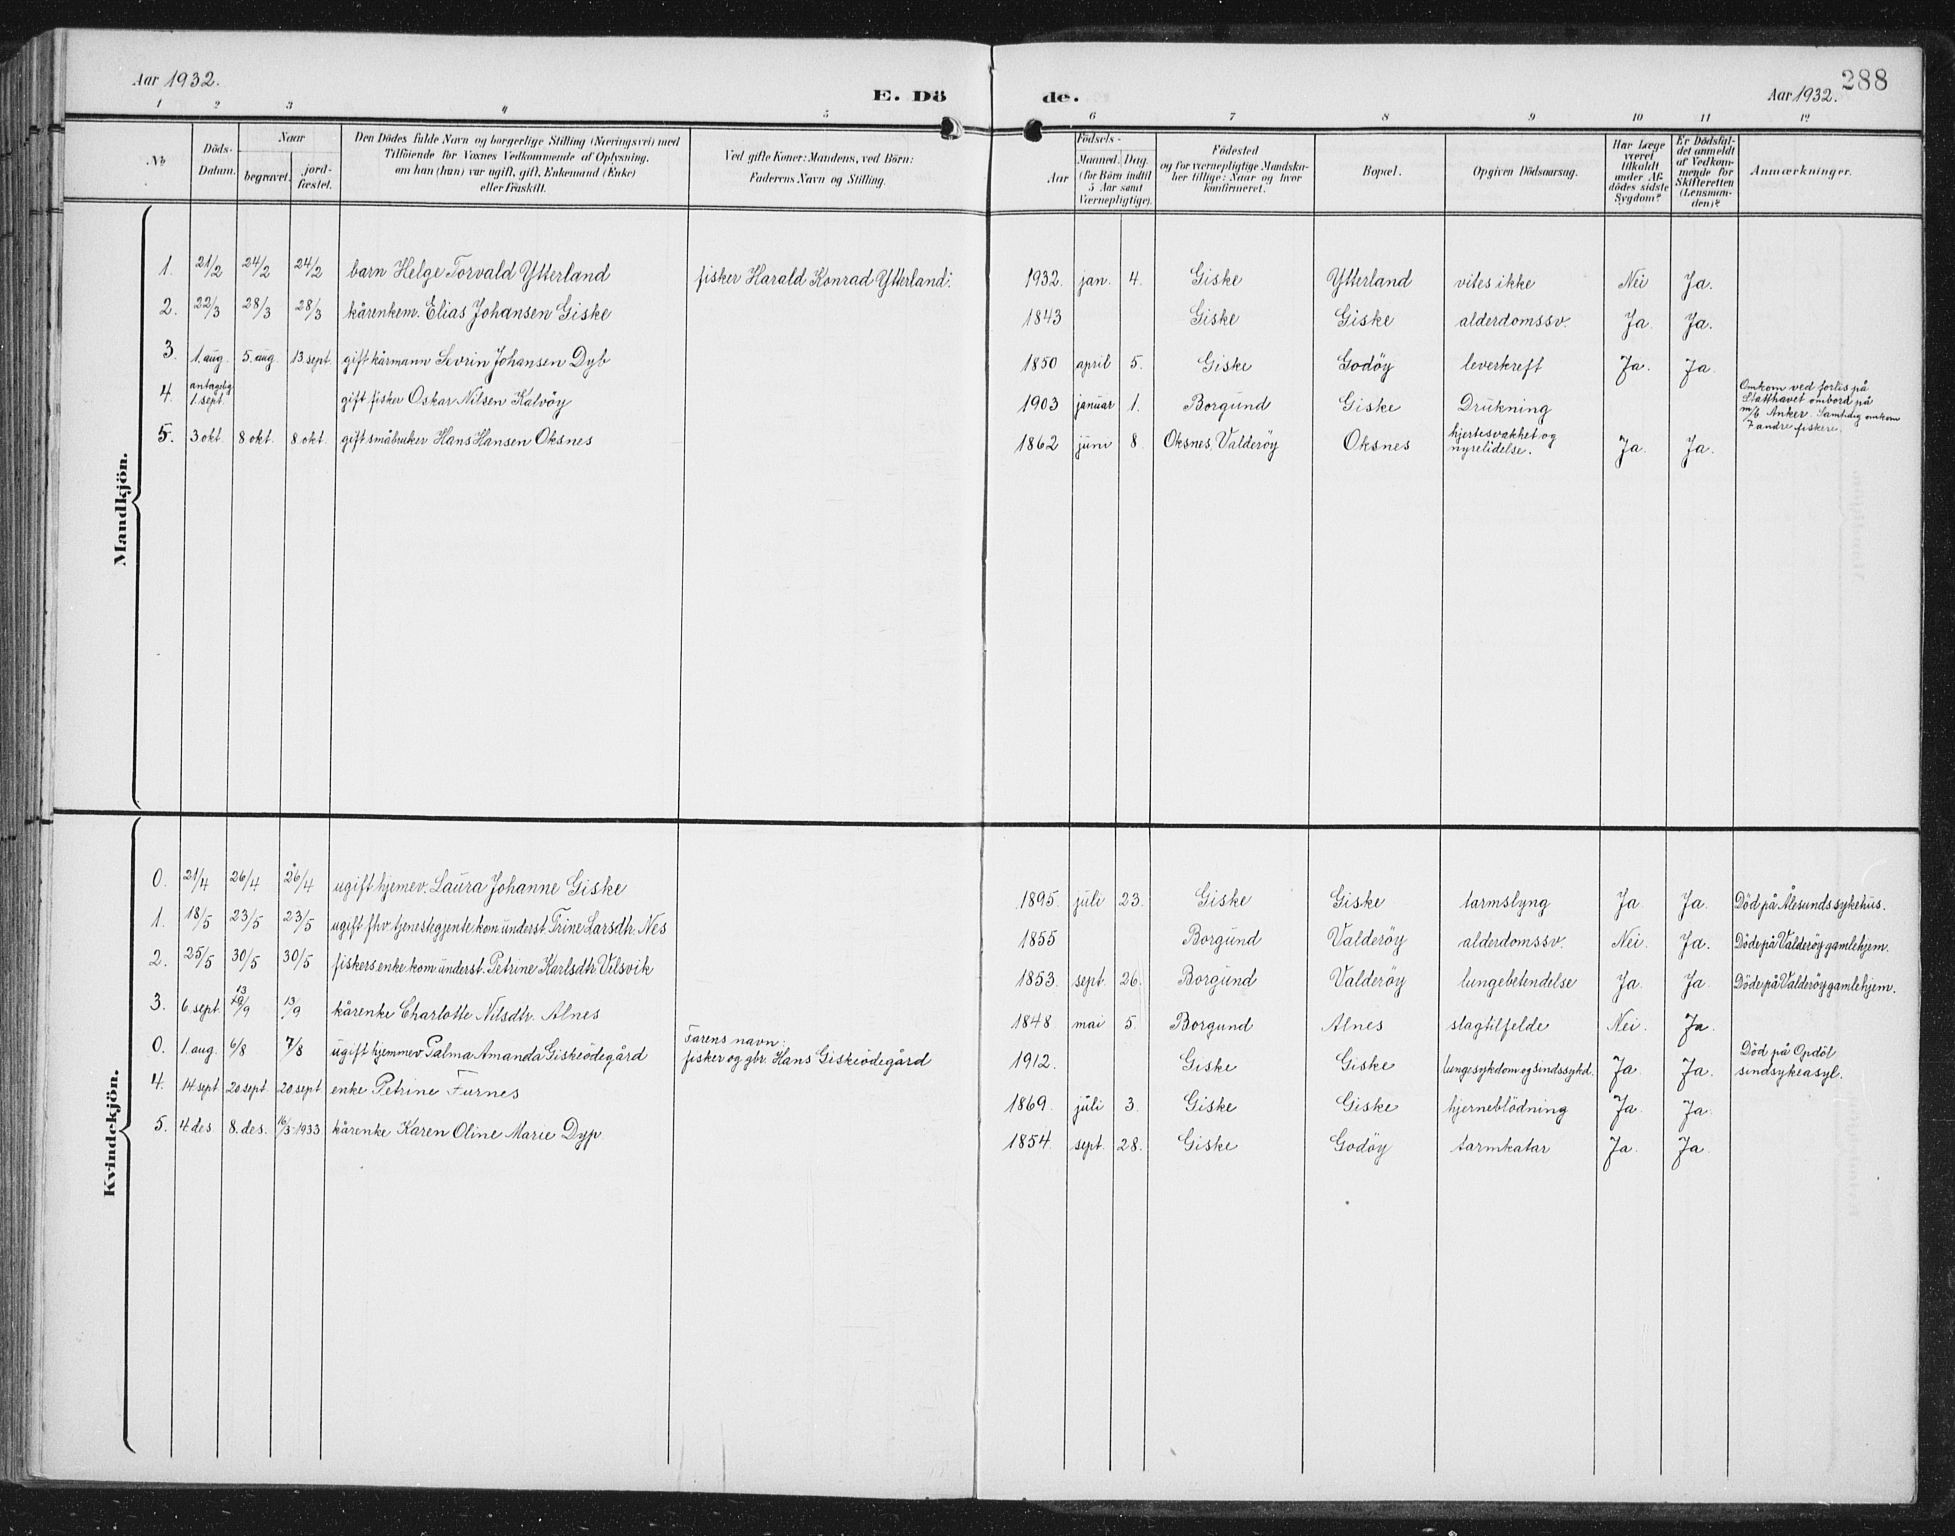 Aar 1932.
E. Dö de.
Aar 1932. 288
1 2 3 4 5 6 7 8 9 10 11 12
No
Döds-
Datum.
Naar
begravet.
jord-
fæstet.
Den Dödes fulde Navn og borgerlige Stilling (Næringsvei) med
Tilföiende for Voxnes Vedkommende af Oplysning,
om han (hun) var ugift, gift, Enkemand (Enke)
eller fraskilt.
Ved gifte Koner: Mandens, ved Börn:
Faderens Navn og Stilling.
Födsels-
Aar
Maaned. Dag.
(for Börn indtil
5 Aar samt
Værnepligtige).
Födested
og for værnepligtige Mandska-
ber tillige: Naar og hvor
konfirmeret.
Bopæl.
Opgiven Dödsaarsag.
Har Læge
været
tilkaldt
under Af-
dödes sidste
Sygdom?
Er Dödsfal-
det anmeldt
af Vedkom-
mende for
Skifteretten
(Lensman-
den)?
Anmærkninger.
Mandkjön.
1. 21/2 24/2 24/2 barn Helge Torvald Ytterland fisker Harald Konrad Ytterland. 1932. jan. 4. Giske Ytterland vites ikke Nei Ja.
2. 22/3 28/3 28/3 kårenkem. Elias Johansen Giske 1843 Giske Giske alderdomssv. Ja. Ja.
3. 1. aug. 5. aug 13 sept. gift kårmann Sevrin Johansen Dyb 1850 april 5. Giske Godöy leverkreft Ja. Ja.
4. antagelig 1. sept. gift fisker Oskar Nilsen Kalvöy 1903 januar 1. Borgund Giske Drukning
Omkom ved forlis på
Statthavet ombord på
m/b Anker. Samtidig omkom
7 andre fiskere.
5. 3 okt. 8 okt. 8 okt. gift småbruker Hans Hansen Oksnes 1862 juni 8. Oksnes, Valderöy Oksnes hjertesvakhet og
nyrelidelse. Ja. Ja.
Kvindekjön.
0. 21/4 26/4 26/4 ugift hjemev. Laura Johanne Giske 1895. juli 23. Giske Giske tarmslyng Ja Ja. Död på Ålesunds sykehus.
1. 18/5 23/5 23/5 ugift fhv. tjenestegjente kom. underst. Trine Larsdtr. Nes 1855 Borgund Valderöy alderdomssv. Nei. Ja. Döde på Valderöy gamlehjem.
2. 25/5 30/5 30/5 fiskersenke kom. underst. Petrine Karlsdtr. Velsvik 1853. sept. 26. Borgund Valderöy lungebetendelse Ja. Ja. Döde på Valderöy gamlehjem.
3. 6. sept. 13/9 13/9 kårenke Charlotte Nilsdtr. Alnes 1848 mai 5. Borgund Alnes slagtilfelde Nei. Ja
0. 1. aug. 6/8 7/8 ugift hjemmev Palma Amanda Giskeödegård Farens navn:
fisker og gbr. Hans Giskeödegård 1912. Giske Giske lungesykdom og sindssykd. Ja Ja. Död på Opdöl
sindsykeasyl.
4. 14 sept 20 sept. 20 sept enke Petrine Furnes 1869. juli 3. Giske Giske hjerneblödning Ja Ja.
5. 4 des 8. des. 16/3-1933 kårenke Karen Oline Marie Dyp 1854. sept. 28. Giske Godöy tarmkatar Ja. Ja.